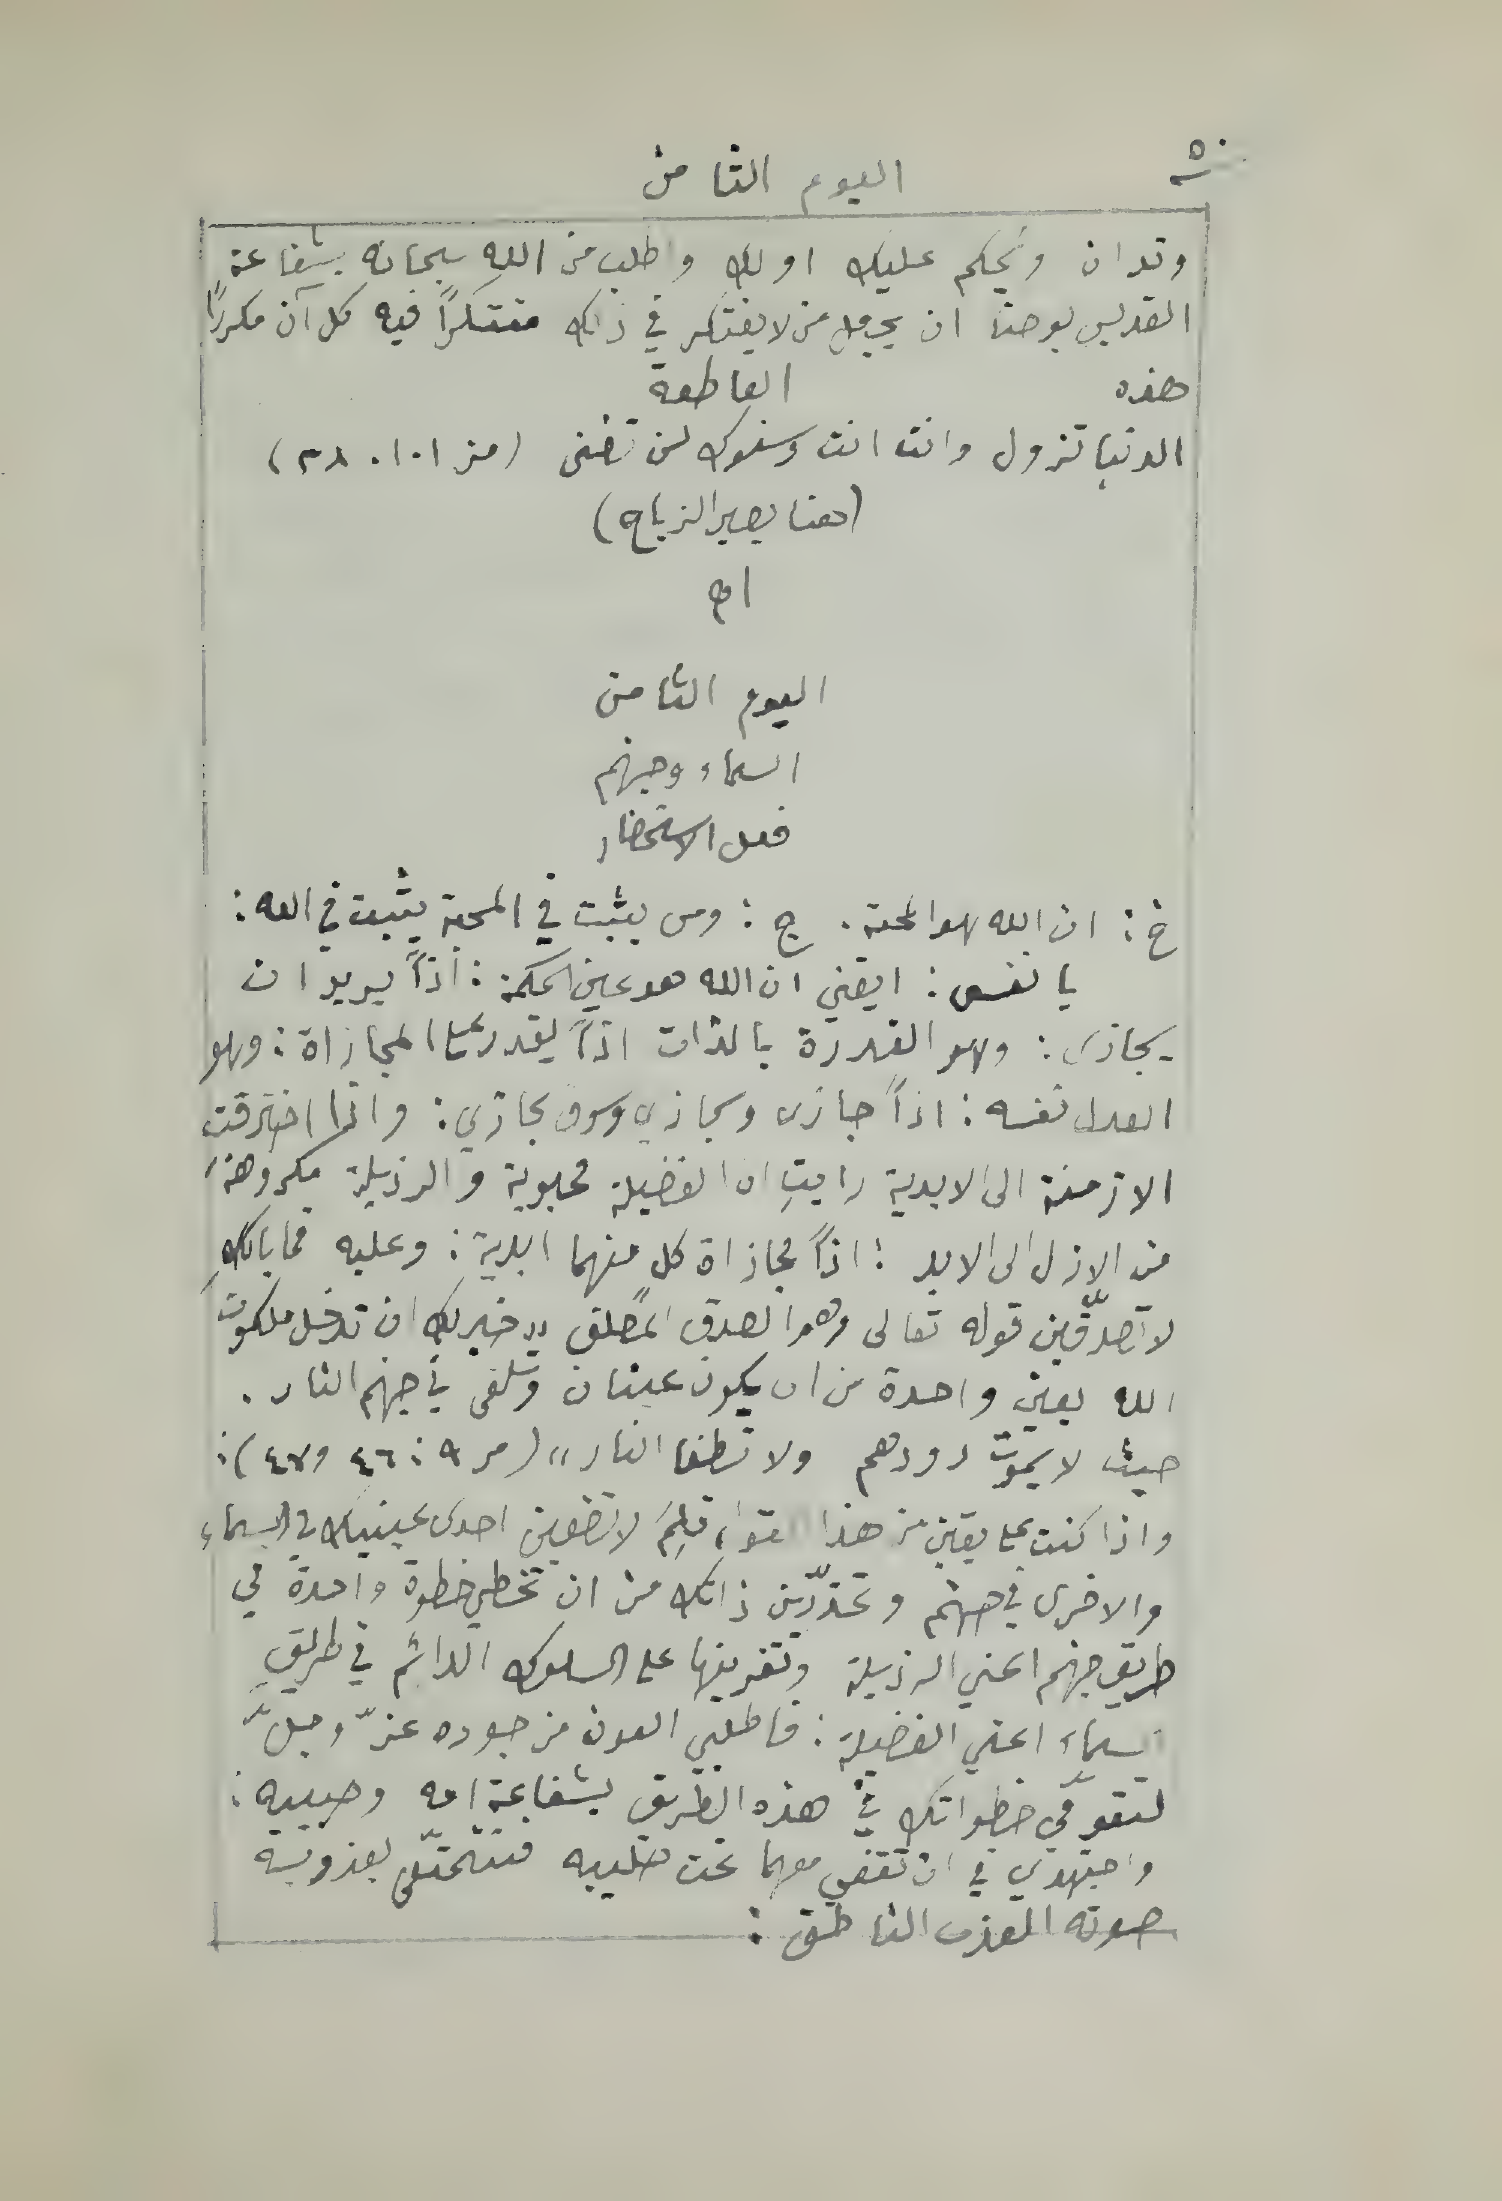 ٥٠
اليوم الثامن
وتدان ويُحكم عليك او لك واطلب من الله سبحانه بشفاعة
القديس يوحنا ان يجعل من لا يفتكر في ذلك مفتكراً فيه كل آن مكرراً
هذه القاطعة
الدنيا تزول وانت انت وسنوك لن تفنى (مز ١٠١. ٢٨)
(هنا يصير الزياح)
اح
اليوم الثامن
السماء وجهنم
فعل الاستحضار
خ: ان الله هو المحبة. ج: ومن يثبت في المحبة يثبت في الله:
يا نفس: ايقني ان الله هو عين الحكمة: اذاً يريد ان
يجازى: وهو القدرة بالذات اذاً يقدر على المجازاة: وهو
العدل نفسه: اذاً جازى ويجازي وسوف يجازي: واذا اخترقت
الازمنة الى الابدية رايتِ ان الفضيلة محبوبة والرذيلة مكروهة
من الازل الى الابد: اذاً مجازاة كل منهما ابدية: وعليه فما بالكِ
لا تصدّقين قوله تعالى وهو الصدق المطلق "خير لك ان تدخل ملكوت
الله بعين واحدة من ان يكون عينان وتلقى في جهنم النار.
حيث لا يموت دودهم ولا تطفا النار" (مر ٩: ٤٦ و٤٧):
واذا كنت على يقين من هذا القول فلِمَ لا تضعين احدى عينيك في السماء
والاخرى في جهنم وتحذّرين ذاتك من ان تخطي خطوة واحدة في
طريق جهنم اعني الرذيلة وتغرينها على السلوك الدائم في طريق
السماء اعني الفضيلة: فاطلبي العون من جوده عزّ وجلّ
لتقوّي خطواتك في هذه الطريق بشفاعة امه وحبيبه:
واجتهدي في ان تقفي معهما تحت صليبه فتتمتّعي بعذوبة
صوته العذب الناطق: